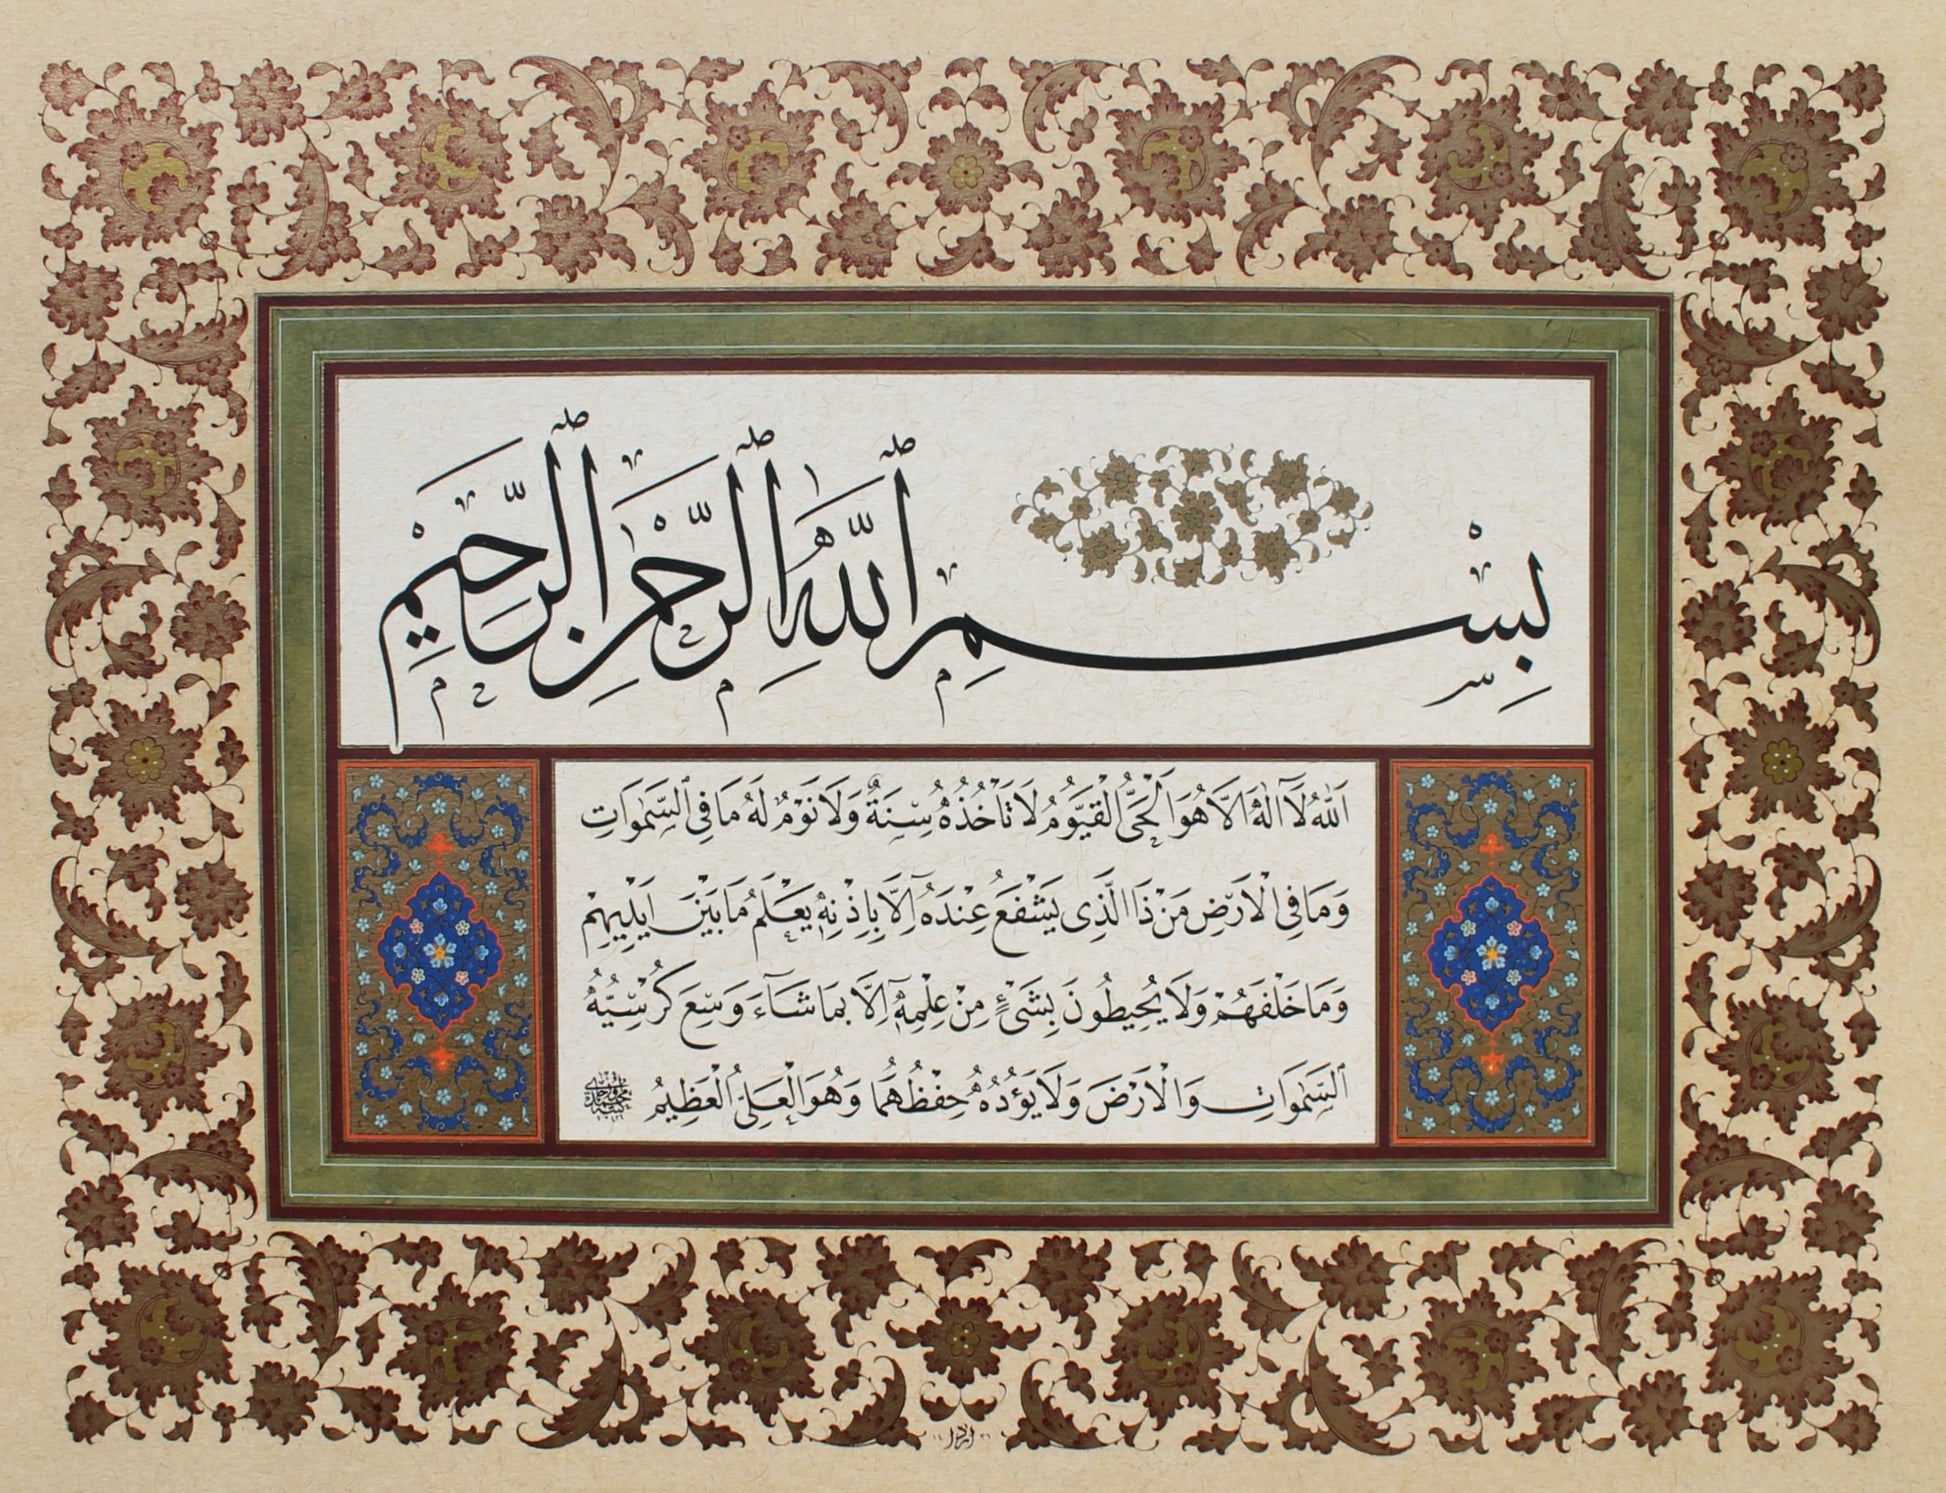 بِسْمِ ٱللَّهِ ٱلرَّحْمٰنِ ٱلرَّحِيمِ
اَللّٰهُ لَآ اِلٰهَ اِلَّا هُوَ الْحَىُّ الْقَيُّومُ لَا تَاْخُذُهُ سِنَةٌ وَلَا نَوْمٌ لَهُ مَا فِى السَّمٰوَاتِ
وَمَا فِى الْاَرْضِ مَنْ ذَا الَّذِى يَشْفَعُ عِنْدَهُ اِلَّا بِاِذْنِهٖ يَعْلَمُ مَا بَيْنَ اَيْدِيهِمْ
وَمَا خَلْفَهُمْ وَلَا يُحِيطُونَ بِشَىْءٍ مِنْ عِلْمِهٖٓ اِلَّا بِمَا شَآءَ وَسِعَ كُرْسِيُّهُ
السَّمٰوَاتِ وَالْاَرْضَ وَلَا يَؤُدُهُ حِفْظُهُمَا وَهُوَ الْعَلِىُّ الْعَظِيمُ